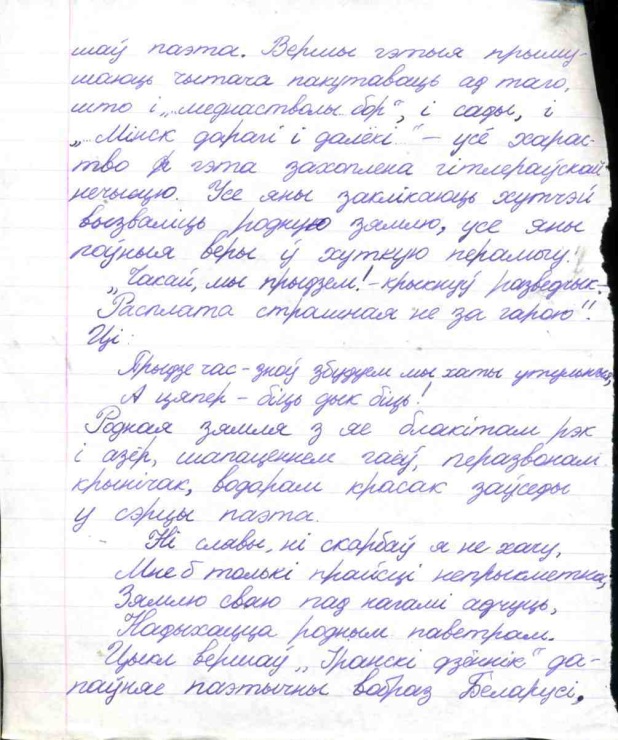 маў паэта. Вершы гэтыя прыму-
шаюць чытача пакутаваць ад таго,
што і „меднастволы бор", і сады, і
„Мінск дарагі і далёкі" – усё харас-
тво гэта захоплена гітлераўскай
нечысцю. Усе яны заклікаюць хутчэй
вызваліць родную зямлю, усе яны
поўныя веры ў хуткую перамогу:
„Чакай, мы прыдзем! – крыкнуў разведчык. –
Расплата страшная не за гарою"!
Ці:
Прыдзе час – зноў збудуем мы хаты утульныя,
А цяпер – біць дык біць!
Родная зямля з яе блакітам рэк
і азёр, шапаценнем гаёў, перазвонам
крынічак, водарам красак заўсёды
у сэрцы паэта.
Ні славы, ні скарбаў я не хачу,
Мне б толькі прайсці непрыкметна,
Зямлю сваю пад нагамі адчуць,
Надыхацца родным паветрам.
Цыкл вершаў „Іранскі дзённік" да-
паўняе паэтычны вобраз Беларусі,